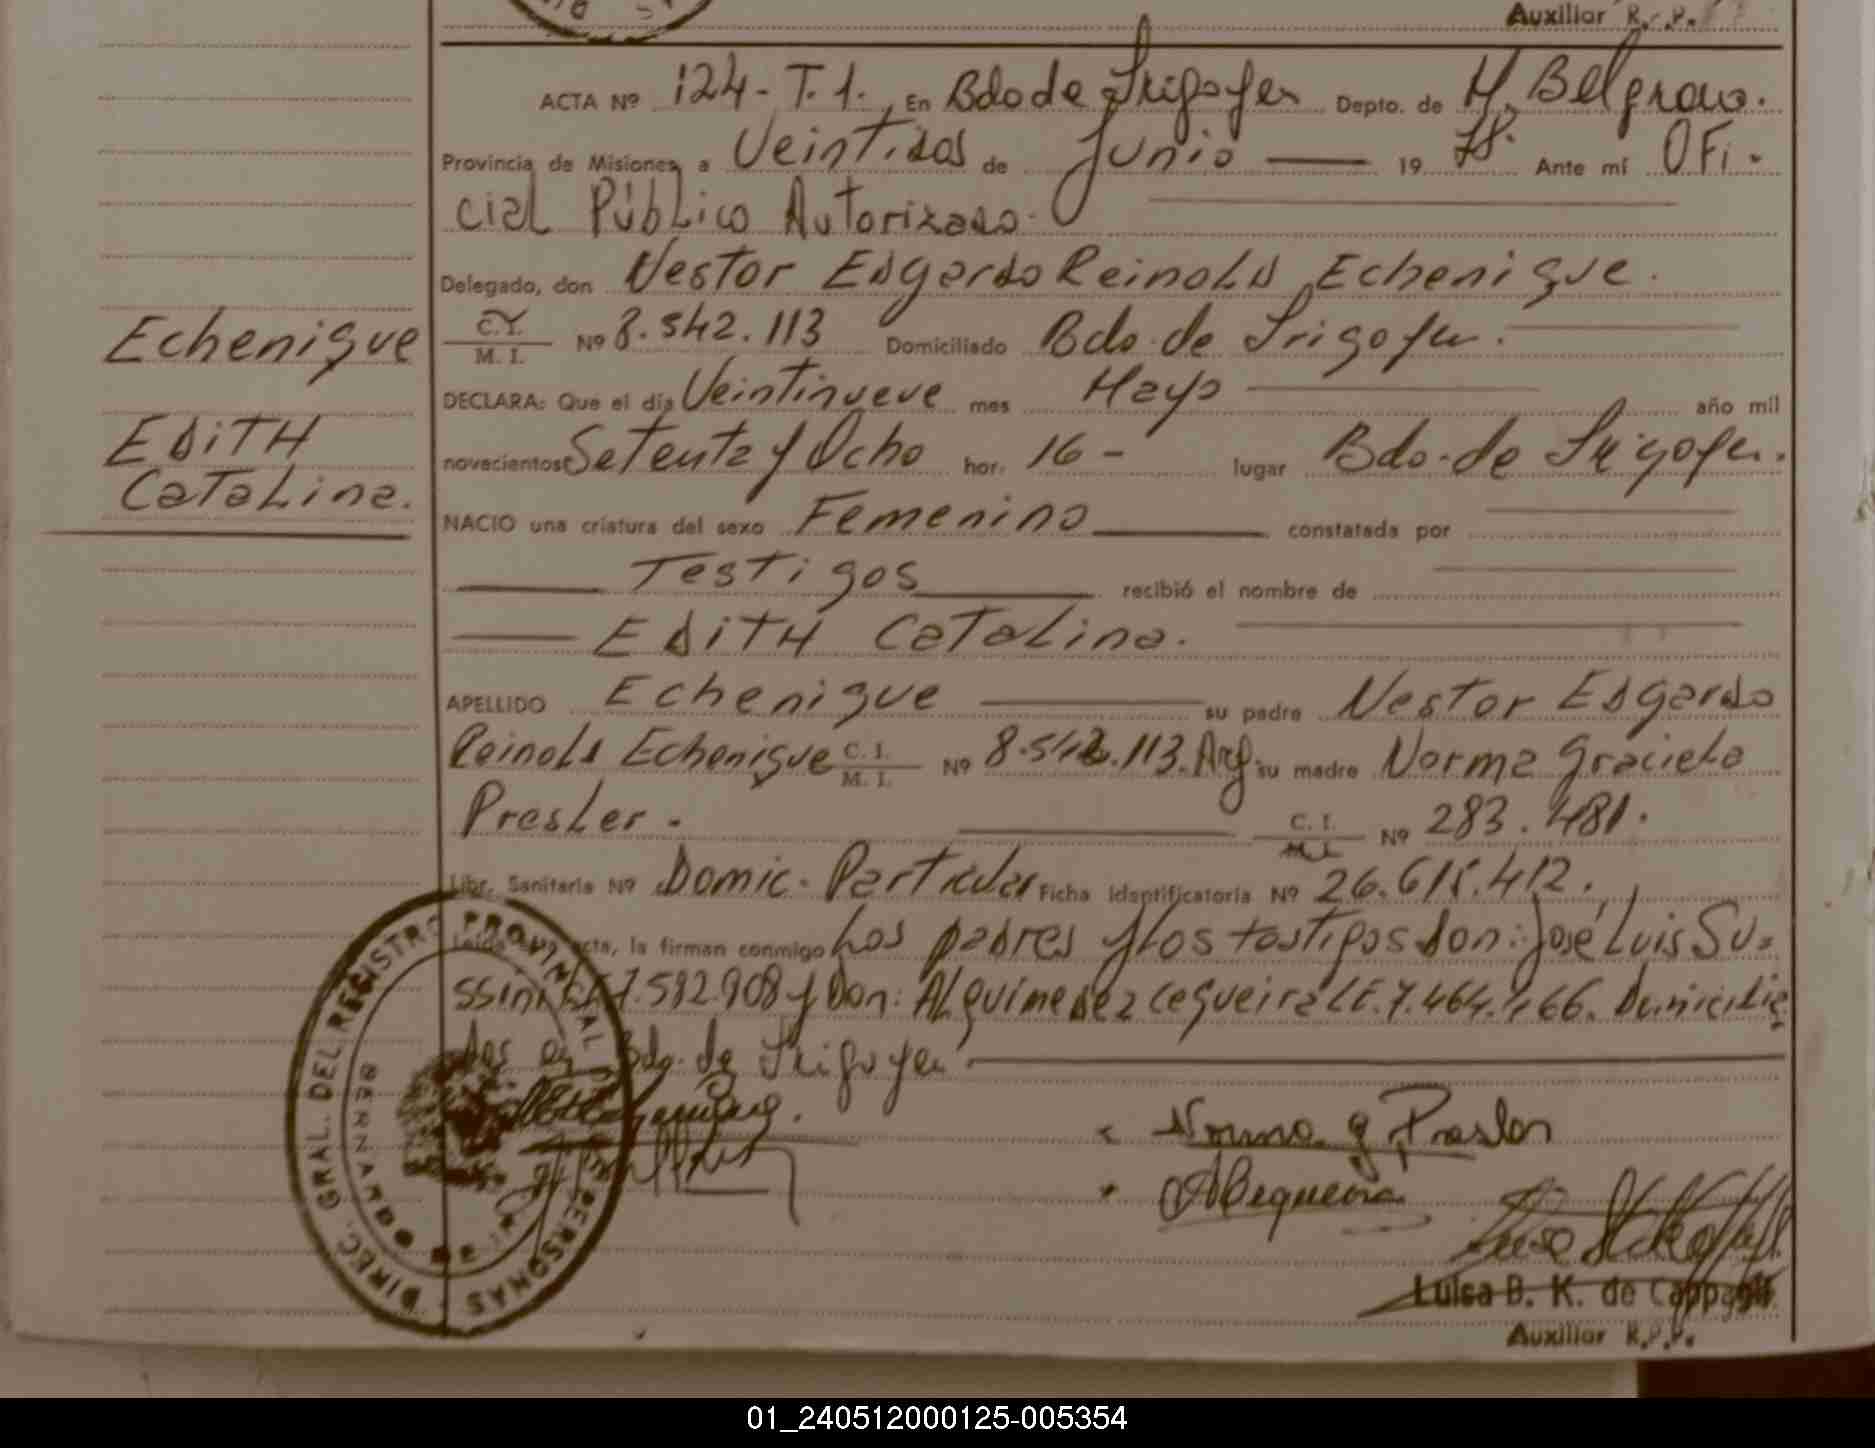 Auxiliar R. P. P.
ACTA Nº 124-T.1. En Bdo de Irigoyen Depto. de M. Belgrano.
Provincia de Misiones, a Veintidos de Junio 19 78. Ante mí OFi-
cial Público Autorizado.
Delegado, don Nestor Edgardo Reinold Echenique.
C.I. / M. I. Nº 8.542.113 Domiciliado Bdo. de Irigoyen.
DECLARA: Que el día Veintinueve mes Mayo año mil
novecientos Setenta y Ocho hor. 16- lugar Bdo. de Irigoyen.
NACIO una criatura del sexo Femenino constatada por
Testigos recibió el nombre de
EDITH Catalina.
APELLIDO Echenique su padre Nestor Edgardo
Reinold Echenique C. I. / M. I. Nº 8.542.113. Arg. su madre Norma Graciela
Presler. C. I. / M.I. Nº 283.481.
Libr. Sanitaria Nº Domic. Particular Ficha Identificatoria Nº 26.615.412.
Leída esta acta, la firman conmigo Los padres y los testigos don: José Luis Su-
ssini 7.592.908 y Don: Alquimedez Cequeira LE. 7.464.466. Domicilia
dos en Bdo. de Irigoyen
Norma G Presler
ACequeira
Luisa B. K. de Cappagli
Auxiliar R.P.P.
Echenique
EDITH
Catalina.
DIREC. GRAL. DEL REGISTRO PROVINCIAL DE PERSONAS
BERNARDO DE
01_240512000125-005354